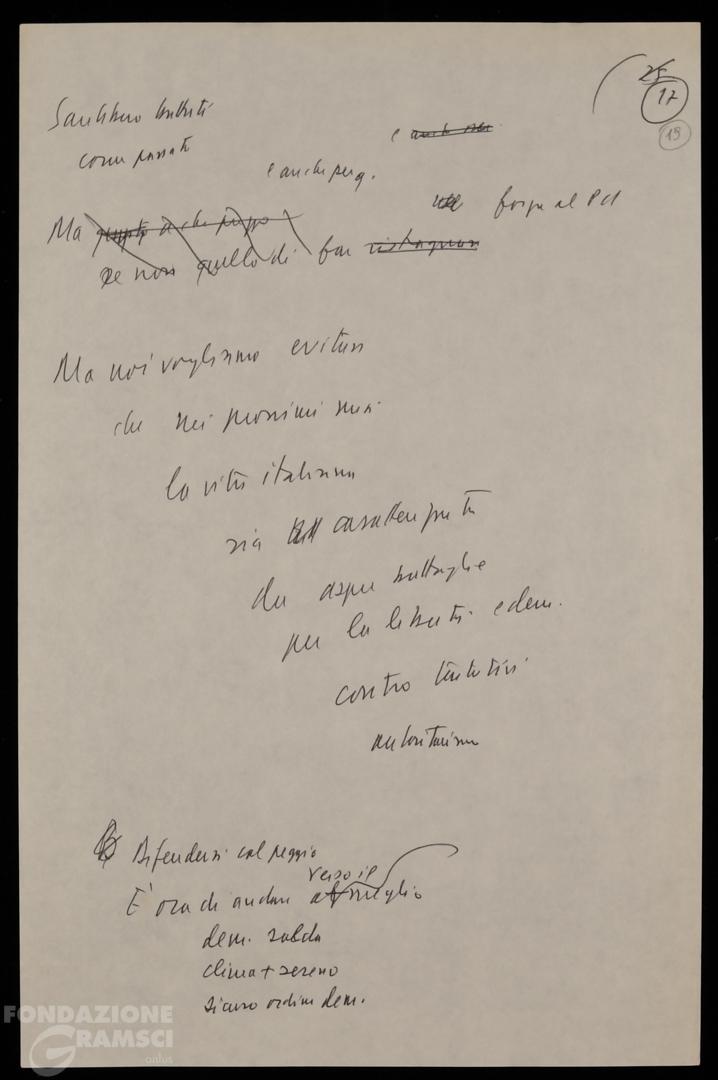 25
17
19
Sarebbero battuti
come passato
e anche
e anche per q.
forze al PCI
Ma
se non quello di far ristagnare
Ma noi vogliamo evitare
che nei prossimi mesi
la vita italiana
sia caratterizzata
da aspre battaglie
per la libertà e dem.
contro tentativi
autoritarismo
Difendersi dal peggio
verso il
E' ora di andare al meglio
dem. salda
clima + sereno
sicuro ordine dem.
FONDAZIONE
GRAMSCI
onlus